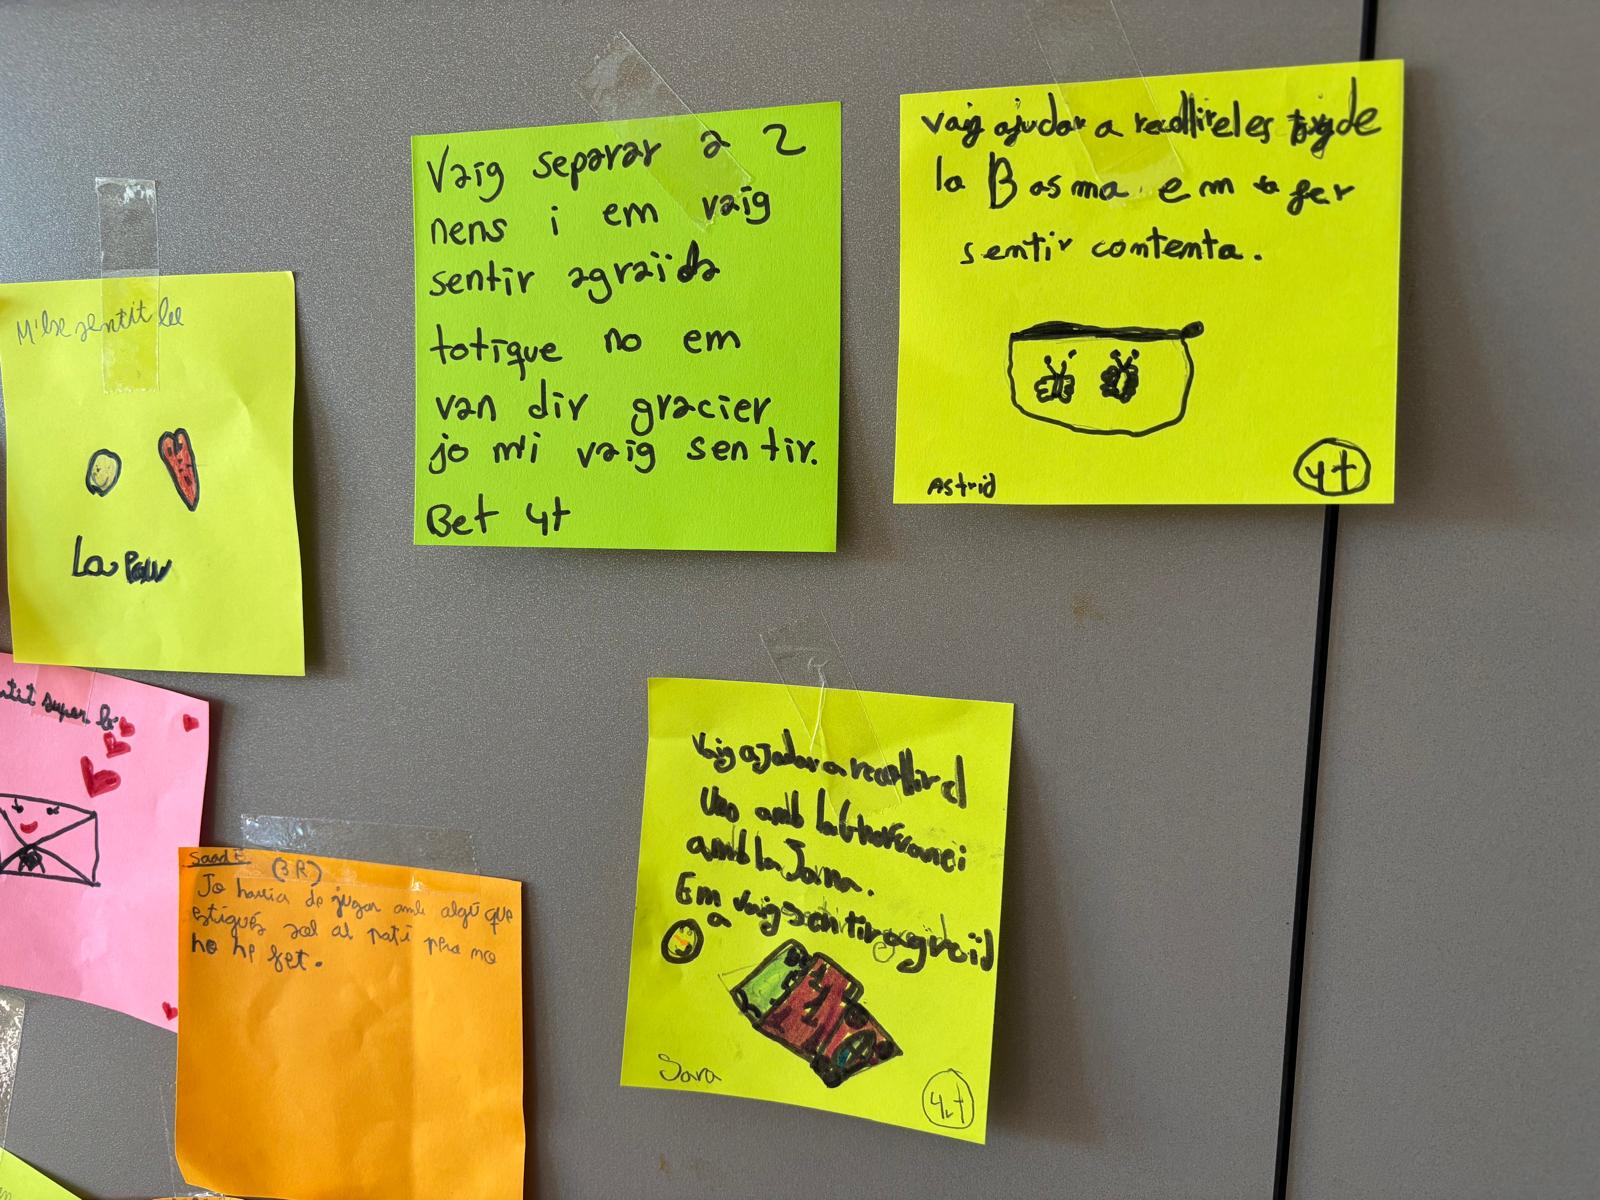 M'he sentit be
La Pau
Vaig separar a 2
nens i em vaig
sentir agraida
totique no em
van dir gracier
jo m'i vaig sentir.
Bet 4t
vaig ajudar a recollireles de
la Basma. em va fer
sentir contenta.
Astrid
4t
super be
Saad E. (3R)
Jo havia de jugar amb algú que
estigués sol al pati pero no
ho he fet.
Vaig ajudar a recollir el
uno amb la
amb la Jana.
Em vaig sentir agraid
a
Sara
4t